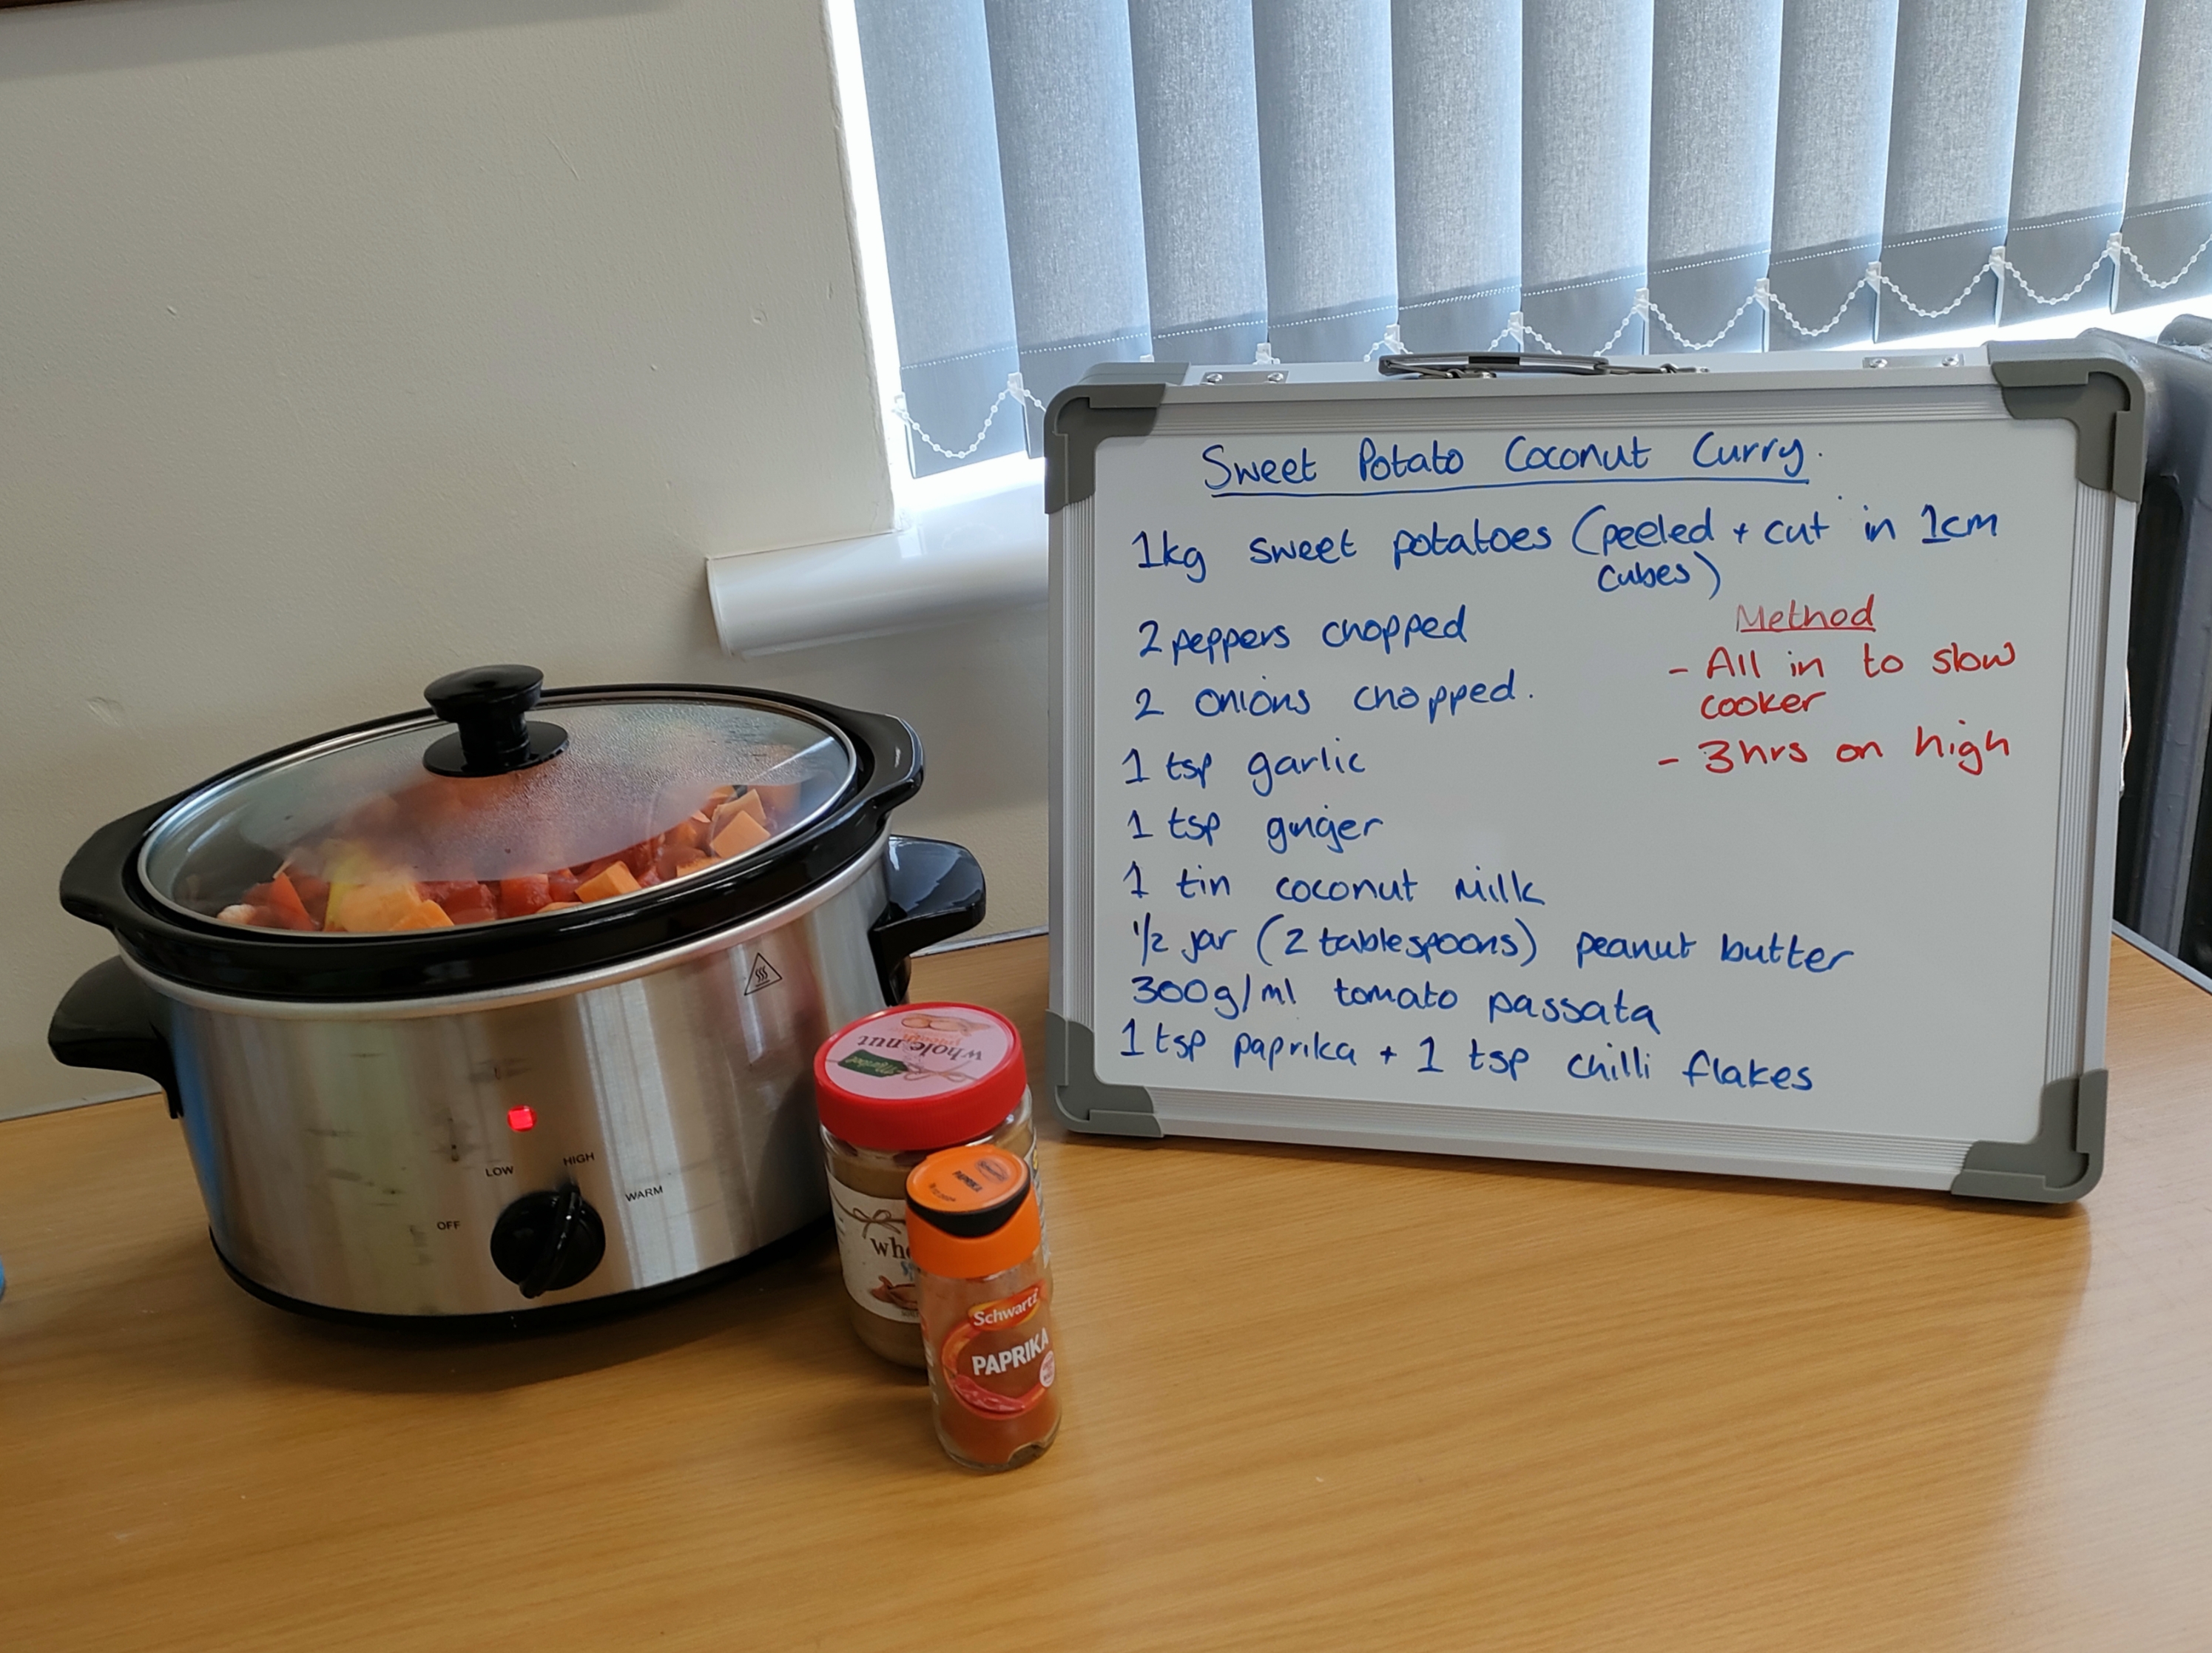 Sweet Potato Coconut Curry.
1kg sweet potatoes (peeled + cut in 1cm
cubes)
2 peppers chopped
2 onions chopped.
1 tsp garlic
1 tsp ginger
1 tin coconut milk
1/2 jar (2 tablespoons) peanut butter
300g/ml tomato passata
1 tsp paprika + 1 tsp chilli flakes
Method
- All in to slow
cooker
- 3hrs on high
OFF
LOW
HIGH
WARM
whole nut
PAPRIKA
Schwartz
PAPRIKA